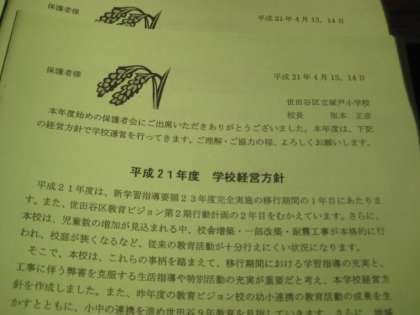 保護者様
平成21年4月13、14日
保護者様
平成21年4月13、14日
世田谷区立塚戸小学校
校長　坂本　正彦
本年度始めの保護者会にご出席いただきありがとうございました。本年度は、下記
の経営方針で学校運営を行ってきます。ご理解・ご協力の程、よろしくお願いします。
平成21年度　学校経営方針
平成21年度は、新学習指導要領23年度完全実施の移行期間の1年目にあたりま
す。また、世田谷区教育ビジョン第2期行動計画の2年目をむかえています。さらに、
本校は、児童数の増加が見込まれる中、校舎増築・一部改築・耐震工事が本格的に行
われ、校庭が狭くなるなど、従来の教育活動が十分行えにくい状況になります。
そこで、本校は、これらの事柄を踏まえて、移行期間における学習指導の充実と、
工事に伴う弊害を克服する生活指導や特別活動の充実が重要だと考え、本学校経営方
針を作成しました。また、昨年度の教育ビジョン校の幼小連携の教育活動の成果を生
かすとともに、小中の連携を進め世田谷9年教育を目指していきます。さらに、地域